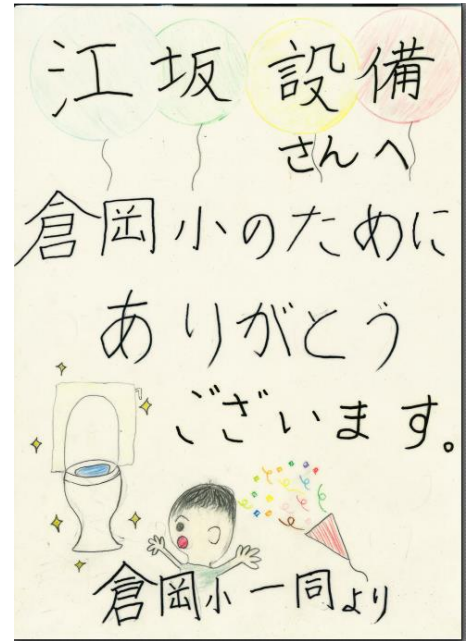 江坂設備
さんへ
倉岡小のために
ありがとう
ございます。
倉岡小一同より